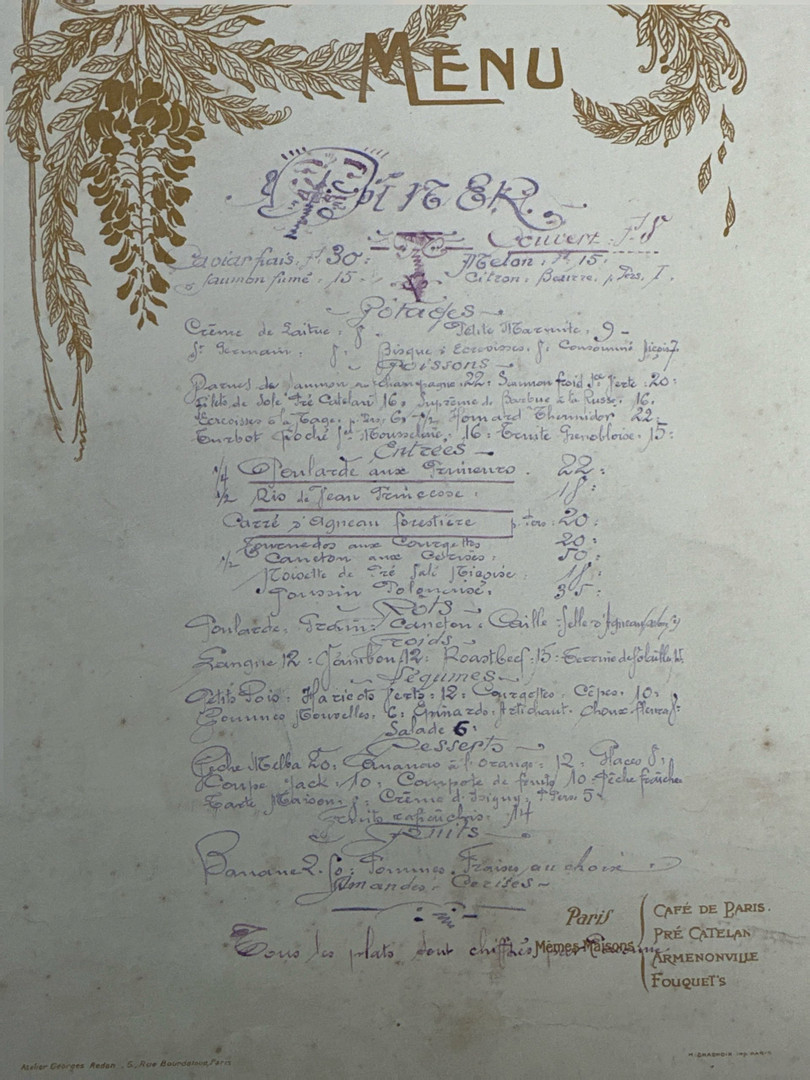 MENU
DÎNER
Couvert. F. 8
Caviar frais. F. 30: Melon. F. 15.
Saumon fumé. 15. Citron, Beurre, p. Pers. 1.
Potages
Crème de Laitue. 8. Petite Marmite. 9-
St Germain. 8. Bisque d'Ecrevisses. 8. Consommé
Poissons
Darnes de Saumon au Champagne. 22. Saumon froid Sce Verte. 20:
Filets de Sole Pré Catelan 16. Suprême de Barbue à la Russe. 16.
Ecrevisses à la Nage. p. Pers. 6. 1/2 Homard Thermidor 22.
Turbot Poché Sce Mousseline. 16: Truite Grenobloise. 15:
Entrées
1/4 Poularde aux Primeurs. 22:
1/2 Ris de Veau Princesse. 18:
Carré d'Agneau forestière p. Pers. 20:
Tournedos aux Courgettes 20:
1/2 Caneton aux Cerises. 50:
Noisette de Pré Salé Niçoise. 18:
Poussin Polonaise. 35:
Rôts
Poularde. Caneton. Caille. Selle d'Agneau
Froids
Langue 12: Jambon. 12: Roastbeef. 15: Terrine de Volaille 15.
Légumes
Petits Pois. Haricots Verts. 12: Courgettes. Cèpes. 10:
Pommes Nouvelles. 6: Epinards. Artichaut. Choux-fleurs
Salade 6:
Desserts
Pêche Melba 20: Ananas à l'Orange. 12: Glaces 8:
Coupe Jack. 10: Compote de fruits 10. Pêche fraîche
Tarte Maison. 8: Crème d'Isigny. p. Pers 5.
Fruits rafraîchis. 14
Fruits
Banane 2.50: Pommes. Fraises au choix
Amandes. Cerises
Tous les plats sont chiffrés par Personne
Paris
Mêmes Maisons
CAFÉ DE PARIS.
PRÉ CATELAN
ARMENONVILLE
FOUQUET'S
Atelier Georges Redon, 5, Rue Bourdaloue, Paris
IMP. PARIS